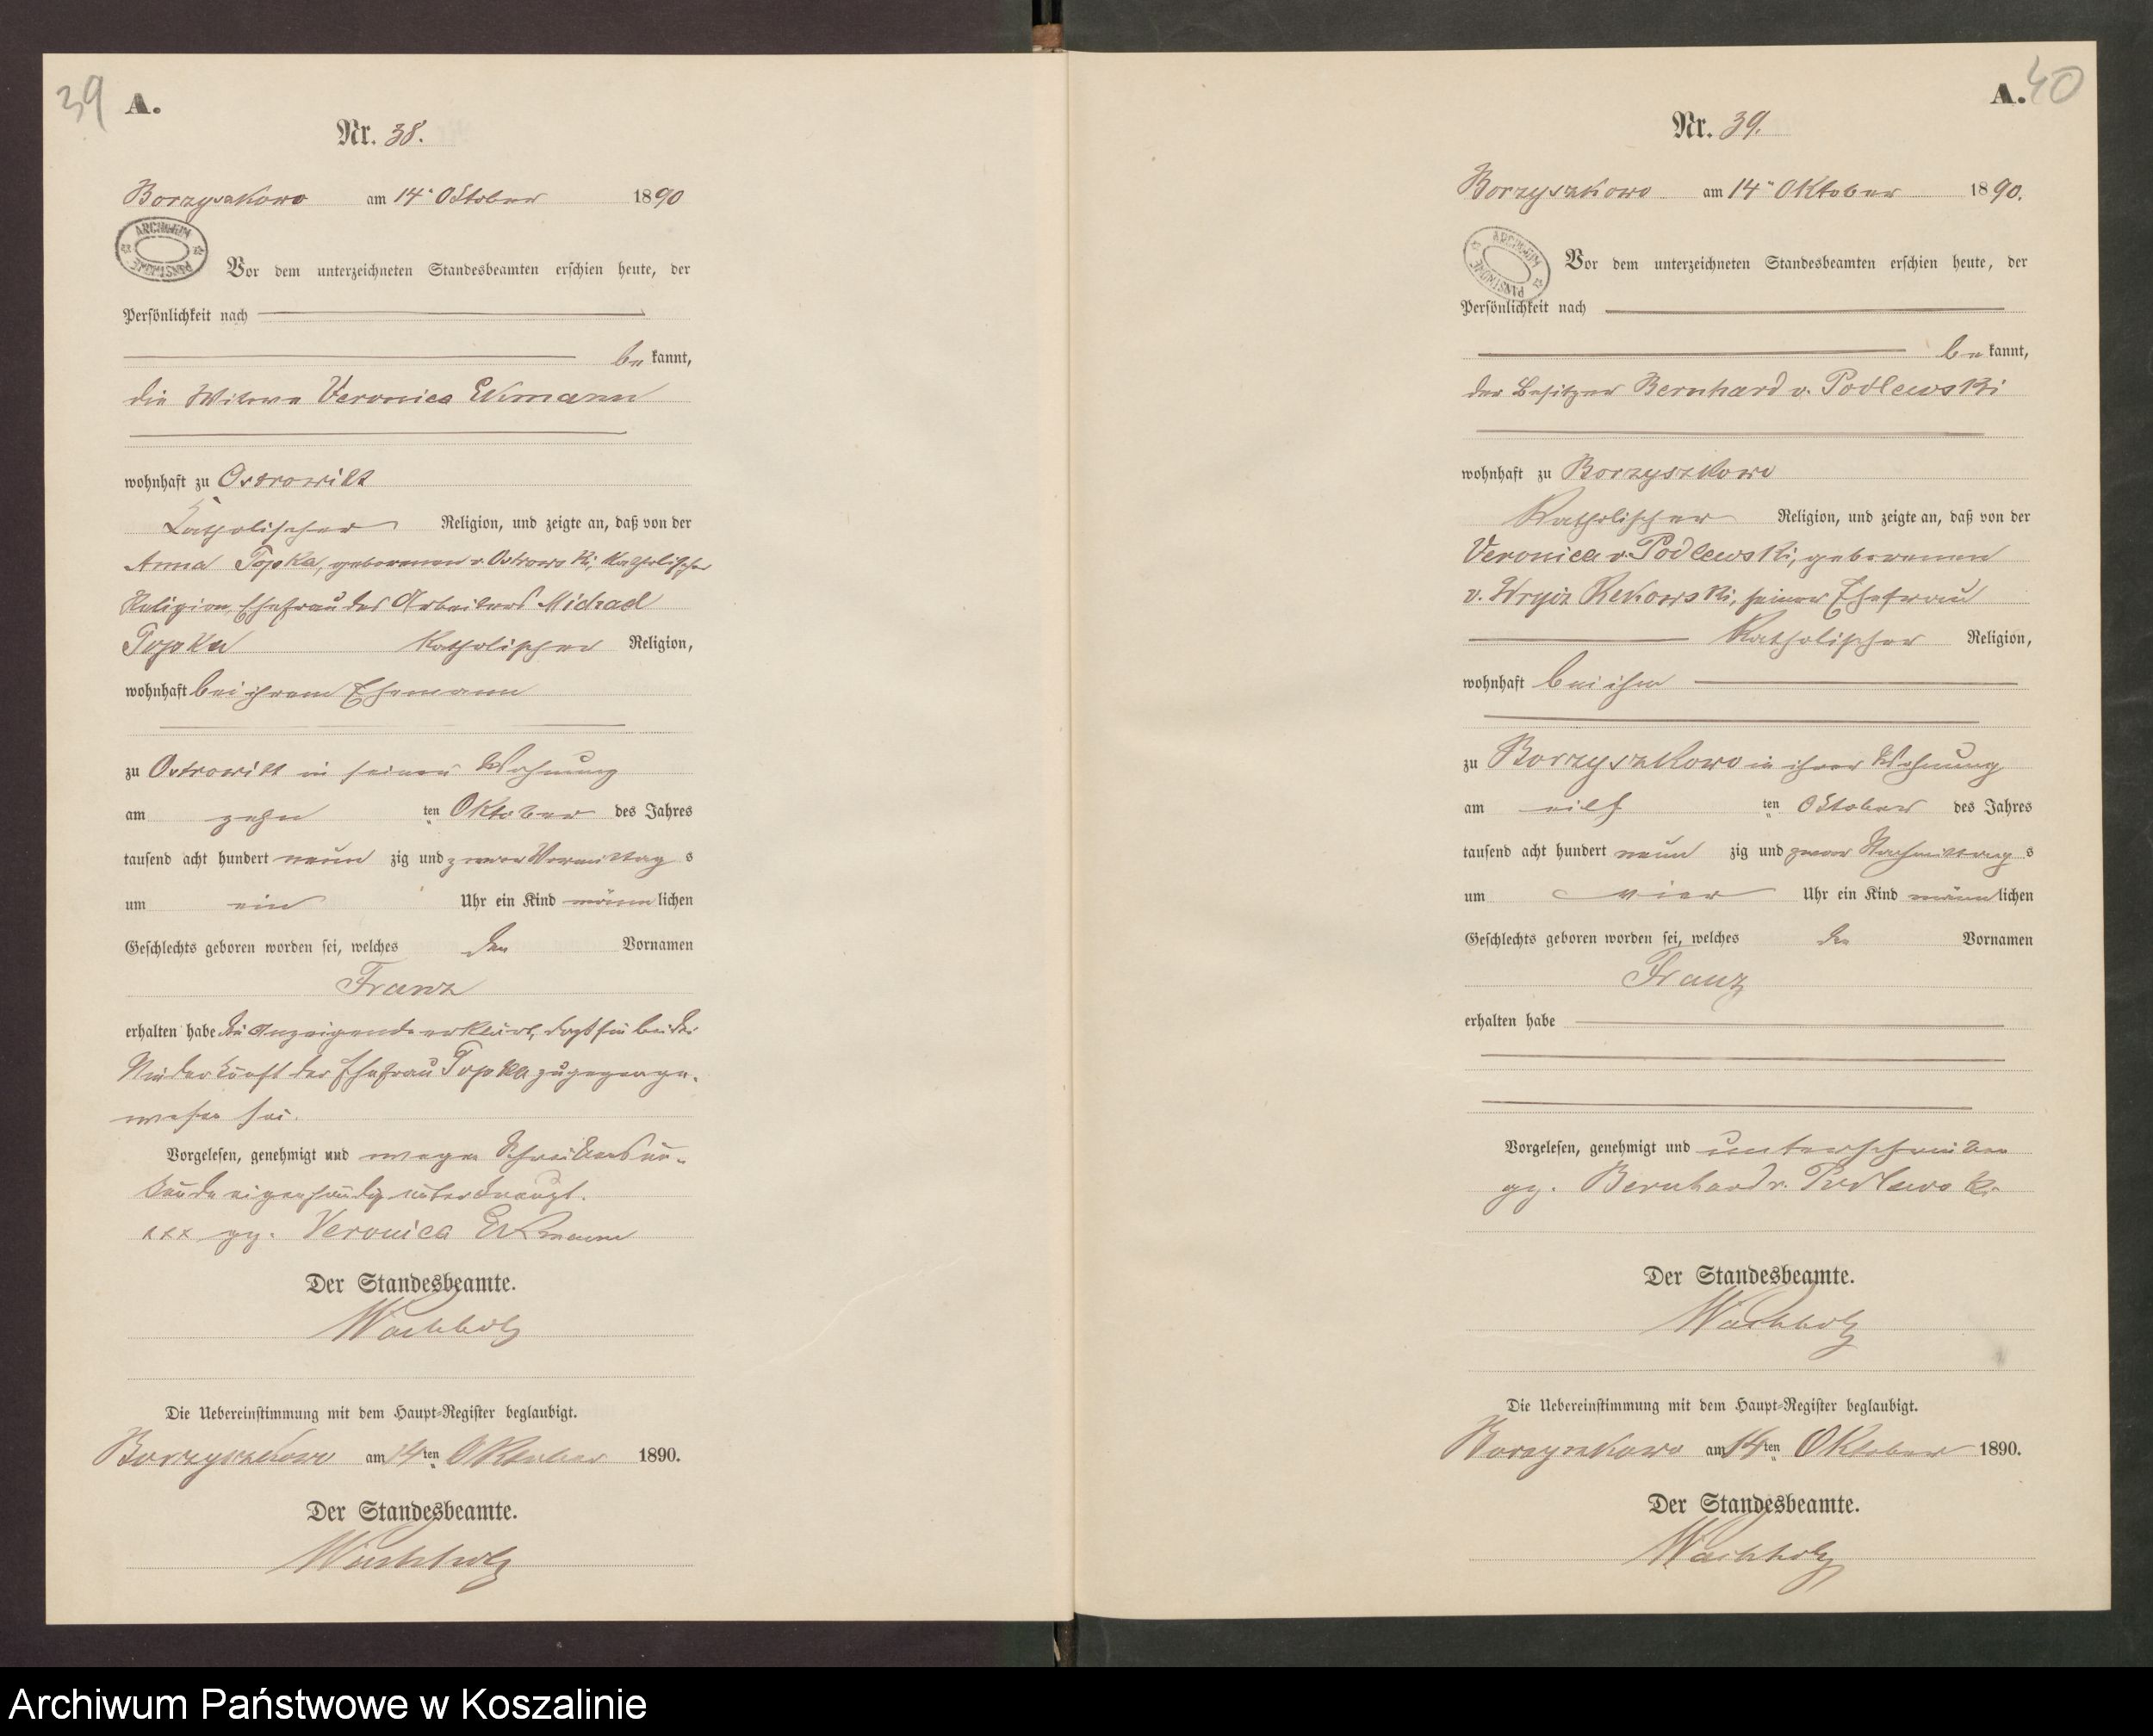 39
A.
Nr. 38.
Borzyszkowo am 14ⁿ Oktober 1890
ARCHIWUM PAŃSTWOWE
Vor dem unterzeichneten Standesbeamten erschien heute, der
Persönlichkeit nach
be kannt,
die Witwe Veronica Ekmann
wohnhaft zu Ostrowitt
katholischer Religion, und zeigte an, daß von der
Anna Topka, geborenen v. Ostrowski, katholischer
Religion, Ehefrau des Arbeiters Michael
Topka katholischer Religion,
wohnhaft bei ihrem Ehemann
zu Ostrowitt in seiner Wohnung
am zehn ten Oktober des Jahres
tausend acht hundert neun zig und zwar Vormittag s
um ein Uhr ein Kind männ lichen
Geschlechts geboren worden sei, welches den Vornamen
Franz
erhalten habe Die Anzeigende erklärt, daß sie bei der
Niederkunft der Ehefrau Topka zugegen ge-
wesen sei.
Vorgelesen, genehmigt und wegen Schreibensun-
kunde eigenhändig unterkreuzt.
xxx gg. Veronica Ekmann
Der Standesbeamte.
Wachholz
Die Uebereinstimmung mit dem Haupt-Register beglaubigt.
Borzyszkowo am 14ten Oktober 1890.
Der Standesbeamte.
Wachholz
A. 40
Nr. 39.
Borzyszkowo am 14ⁿ Oktober 1890.
ARCHIWUM PAŃSTWOWE
Vor dem unterzeichneten Standesbeamten erschien heute, der
Persönlichkeit nach
be kannt,
der Besitzer Bernhard v. Podlewski
wohnhaft zu Borzyszkowo
katholischer Religion, und zeigte an, daß von der
Veronica v. Podlewski, geborenen
v. Wrycz Rekowski, seiner Ehefrau
katholischer Religion,
wohnhaft bei ihm
zu Borzyszkowo in ihrer Wohnung
am eilf ten Oktober des Jahres
tausend acht hundert neun zig und zwar Nachmittag s
um vier Uhr ein Kind männ lichen
Geschlechts geboren worden sei, welches den Vornamen
Franz
erhalten habe
Vorgelesen, genehmigt und unterschrieben
gg. Bernhard v. Podlewski
Der Standesbeamte.
Wachholz
Die Uebereinstimmung mit dem Haupt-Register beglaubigt.
Borzyszkowo am 14ten Oktober 1890.
Der Standesbeamte.
Wachholz
Archiwum Państwowe w Koszalinie